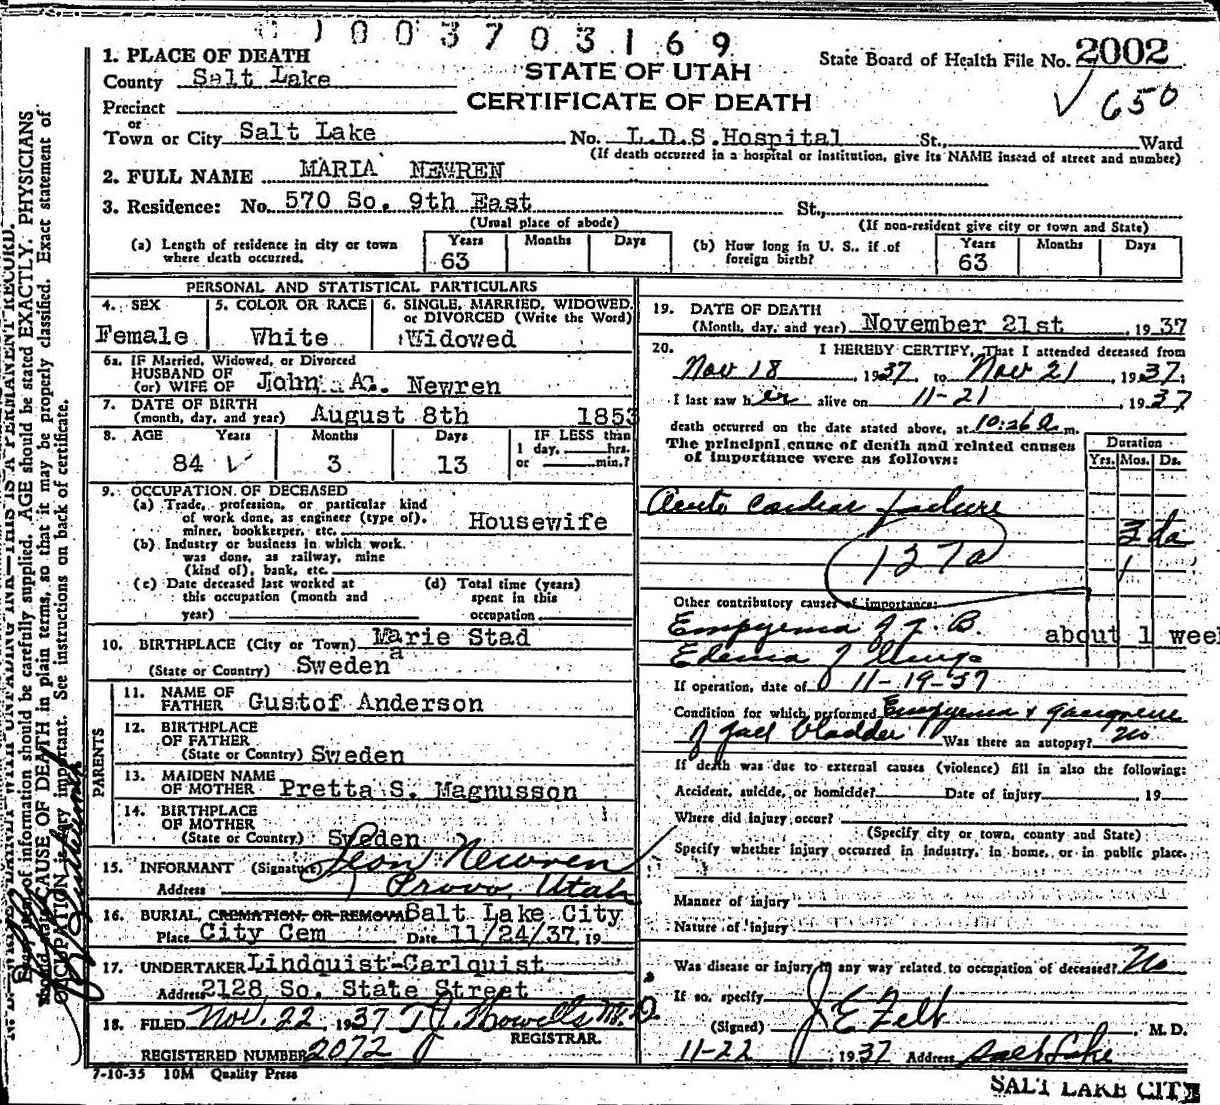 1003703169
State Board of Health File No. 2002
650
STATE OF UTAH
CERTIFICATE OF DEATH
1. PLACE OF DEATH
County Salt Lake
Precinct
or
Town or City Salt Lake No. L.D.S. Hospital St., Ward
(If death occurred in a hospital or institution, give its NAME insead of street and number)
2. FULL NAME MARIA NEWREN
3. Residence: No. 570 So. 9th East St.,
(Usual place of abode) (If non-resident give city or town and State)
(a) Length of residence in city or town where death occurred. Years 63 Months Days
(b) How long in U. S., if of foreign birth? Years 63 Months Days
PERSONAL AND STATISTICAL PARTICULARS
4. SEX Female
5. COLOR OR RACE White
6. SINGLE, MARRIED, WIDOWED, or DIVORCED (Write the Word) Widowed
6a. IF Married, Widowed, or Divorced
HUSBAND OF
(or) WIFE OF John A. Newren
7. DATE OF BIRTH
(month, day, and year) August 8th 1853
8. AGE Years Months Days IF LESS than
1 day, hrs.
84 3 13 or min.?
9. OCCUPATION OF DECEASED
(a) Trade, profession, or particular kind
of work done, as engineer (type of),
miner, bookkeeper, etc. Housewife
(b) Industry or business in which work
was done, as railway, mine
(kind of), bank, etc.
(c) Date deceased last worked at
this occupation (month and
year)
(d) Total time (years)
spent in this
occupation
10. BIRTHPLACE (City or Town) Marie Stad
a
(State or Country) Sweden
PARENTS
11. NAME OF
FATHER Gustof Anderson
12. BIRTHPLACE
OF FATHER
(State or Country) Sweden
13. MAIDEN NAME
OF MOTHER Pretta S. Magnusson
14. BIRTHPLACE
OF MOTHER
(State or Country) Sweden
15. INFORMANT (Signature) Leon Newren
Address Provo, Utah
16. BURIAL, CREMATION, OR REMOVAL Salt Lake City
Place City Cem Date 11/24/37, 19
17. UNDERTAKER Lindquist-Carlquist
Address 2128 So. State Street
18. FILED Nov. 22, 1937 T J. Howells M.D.
REGISTRAR.
REGISTERED NUMBER 2072
7-10-35 10M Quality Press
19. DATE OF DEATH
(Month, day, and year) November 21st, 1937
20. I HEREBY CERTIFY, That I attended deceased from
Nov 18, 1937, to Nov 21, 1937;
I last saw her alive on 11-21, 1937
death occurred on the date stated above, at 10:26 a. m.
The principal cause of death and related causes
of importance were as follows:
Duration
Yrs. Mos. Ds.
Acute Cardiac failure
3 da
127a
1
Other contributory causes of importance:
Empyema of G. B. about 1 week
Edema of lungs
If operation, date of 11-19-37
Condition for which performed Empyema & Gangrene
of gall bladder Was there an autopsy? no
If death was due to external causes (violence) fill in also the following:
Accident, suicide, or homicide? Date of injury, 19
Where did injury occur?
(Specify city or town, county and State)
Specify whether injury occurred in industry, in home, or in public place.
Manner of injury
Nature of injury
Was disease or injury in any way related to occupation of deceased? No
If so, specify
(Signed) J E Felt, M. D.
11-22, 1937 Address Salt Lake
SALT LAKE CITY
THIS IS A PERMANENT RECORD.
of information should be carefully supplied. AGE should be stated EXACTLY. PHYSICIANS
CAUSE OF DEATH in plain terms, so that it may be properly classified. Exact statement of
OCCUPATION is very important. See instructions on back of certificate.